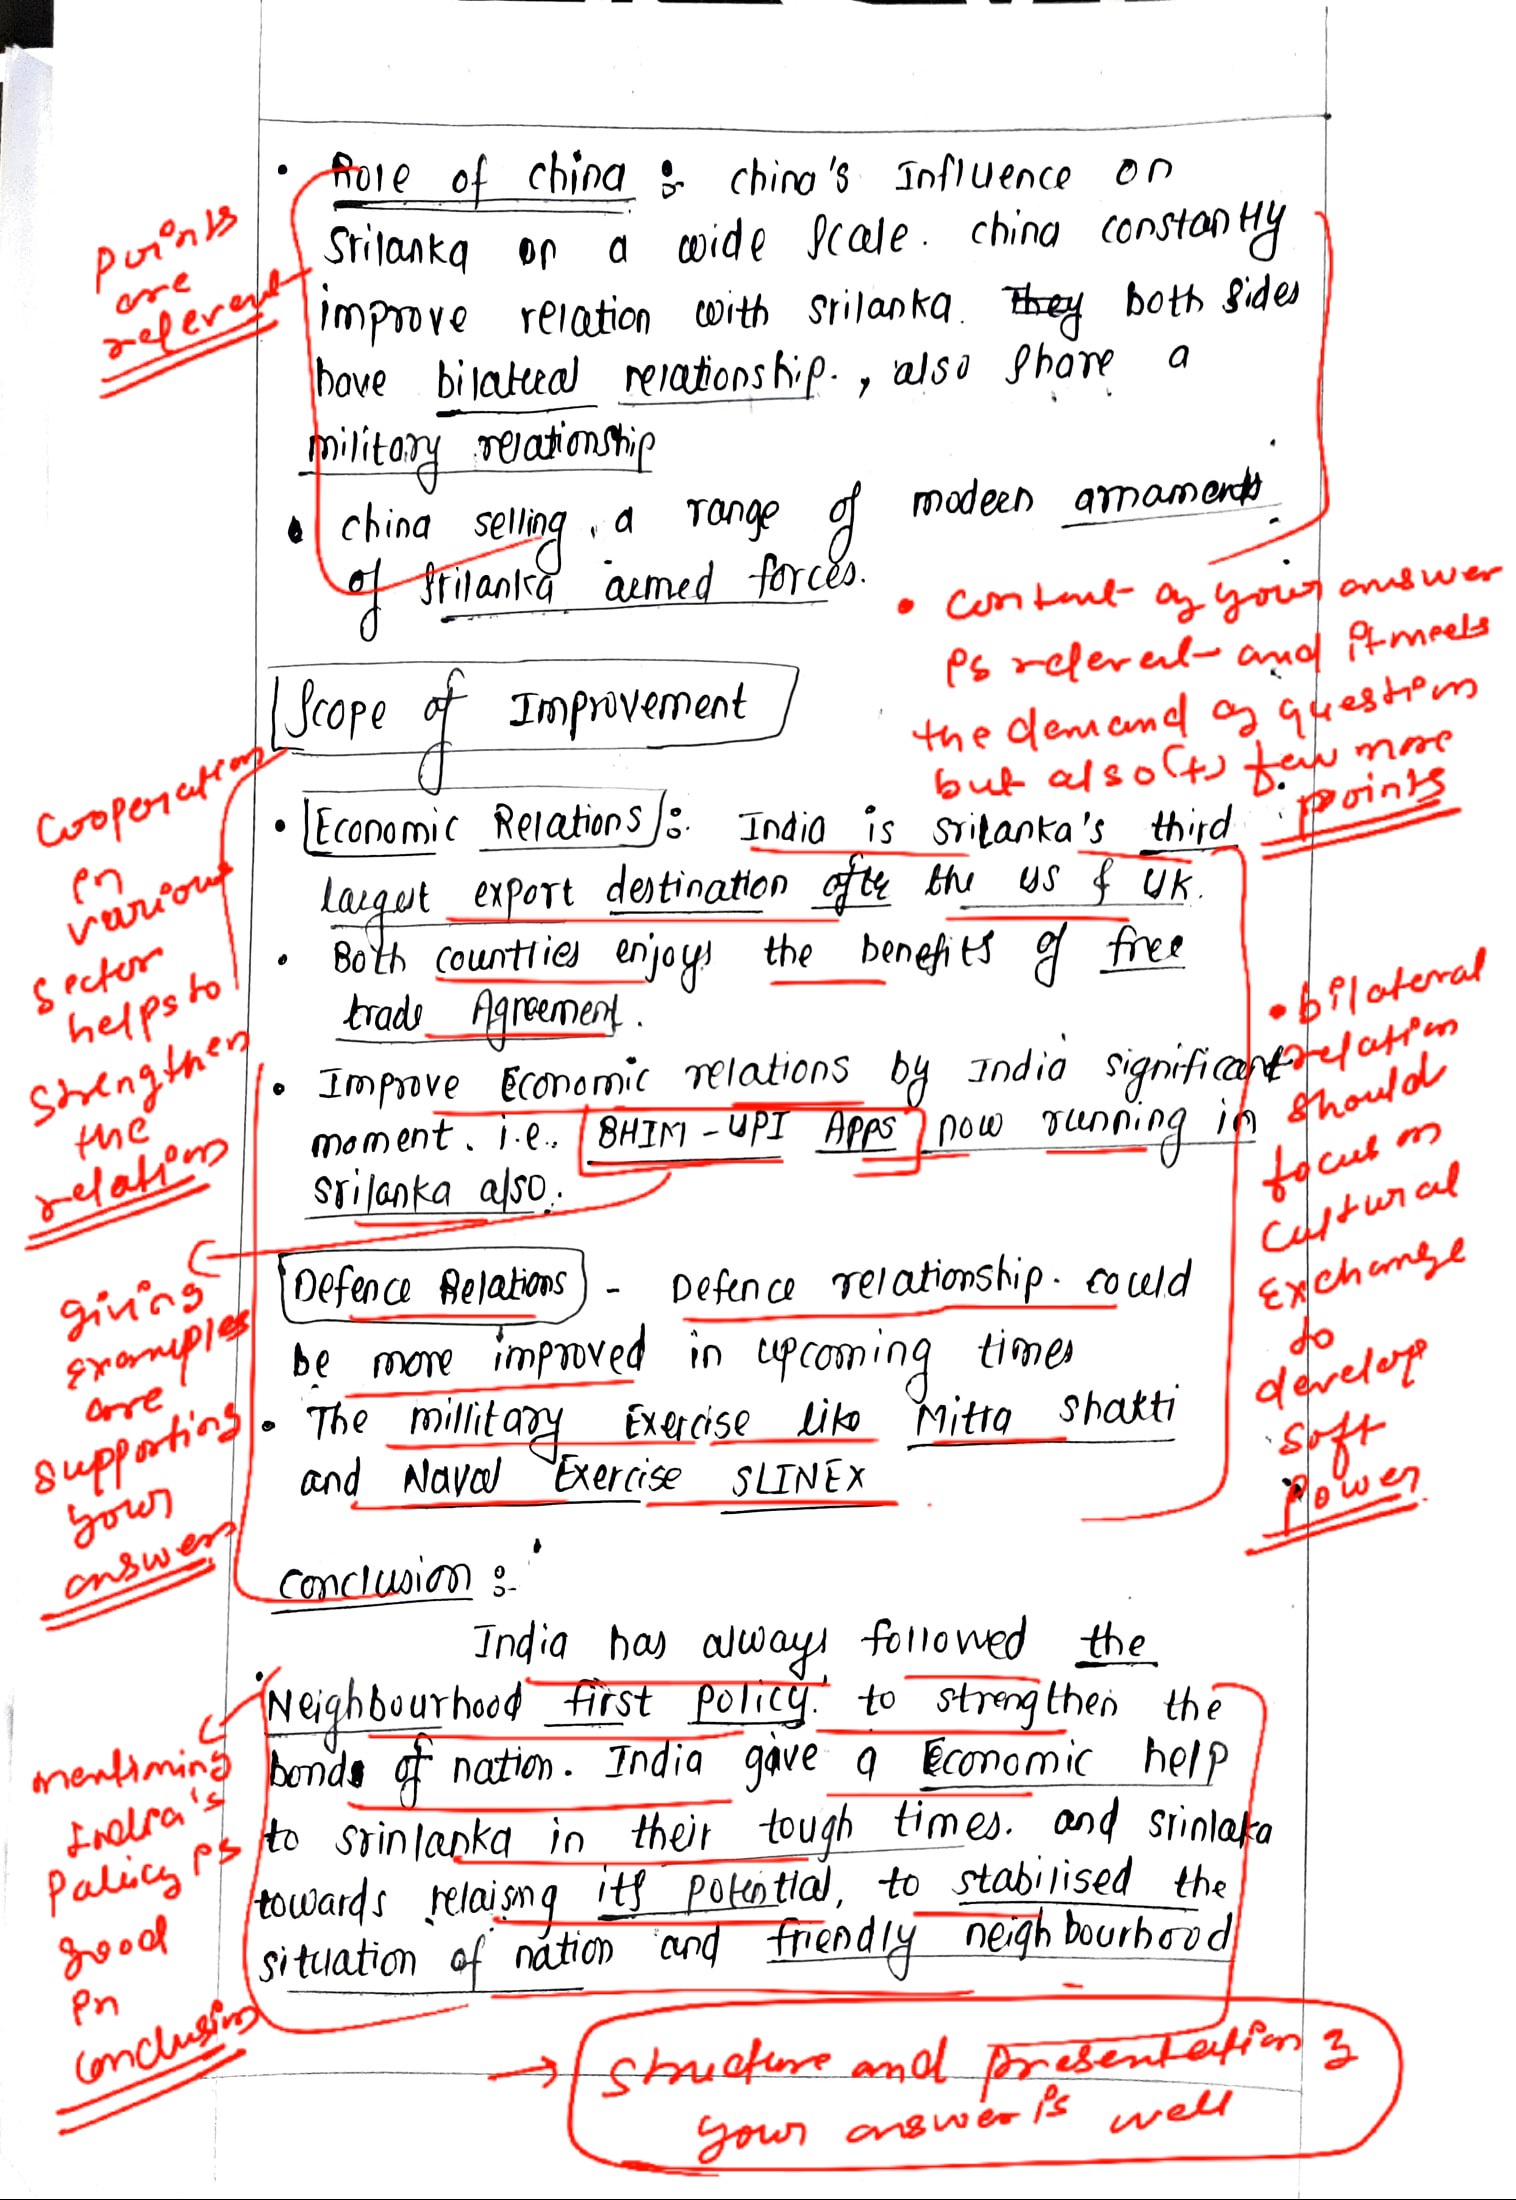 • Role of china :- china's Influence on
Srilanka on a wide Scale. china constantly
improve relation with srilanka. They both sides
have bilateral relationship. , also Share a
military relationship
• china selling a range of modern arnaments
of Srilanka armed forces.
Points
are
referent
• Content of your answer
is referent and it meets
the demand of question
but also (+) few more
points
Scope of Improvement
• Economic Relations :- India is srilanka's third
largest export destination after the US & UK.
• Both countries enjoys the benefits of free
trade Agreement.
• Improve Economic relations by India significant
moment. i.e., BHIM-UPI Apps now running in
srilanka also.
Cooperation
in
various
sector
helps to
strengthen
the
relation
Defence Relations - Defence relationship. could
be more improved in upcoming times
• The millitary Exercise like Mitra Shakti
and Naval Exercise SLINEX
giving
examples
are
supporting
your
answer
• bilateral
relation
should
focus on
Cultural
Exchange
to
develop
Soft
Power
conclusion :-
India has always followed the
Neighbourhood first policy. to strengthen the
bonds of nation. India gave a Economic help
to srinlanka in their tough times. and srinlaka
towards relaising its potential, to stabilised the
situation of nation and friendly neighbourhood
mentioning
India's
Policy is
good
in
conclusion
→ Structure and presentation of
your answer is well